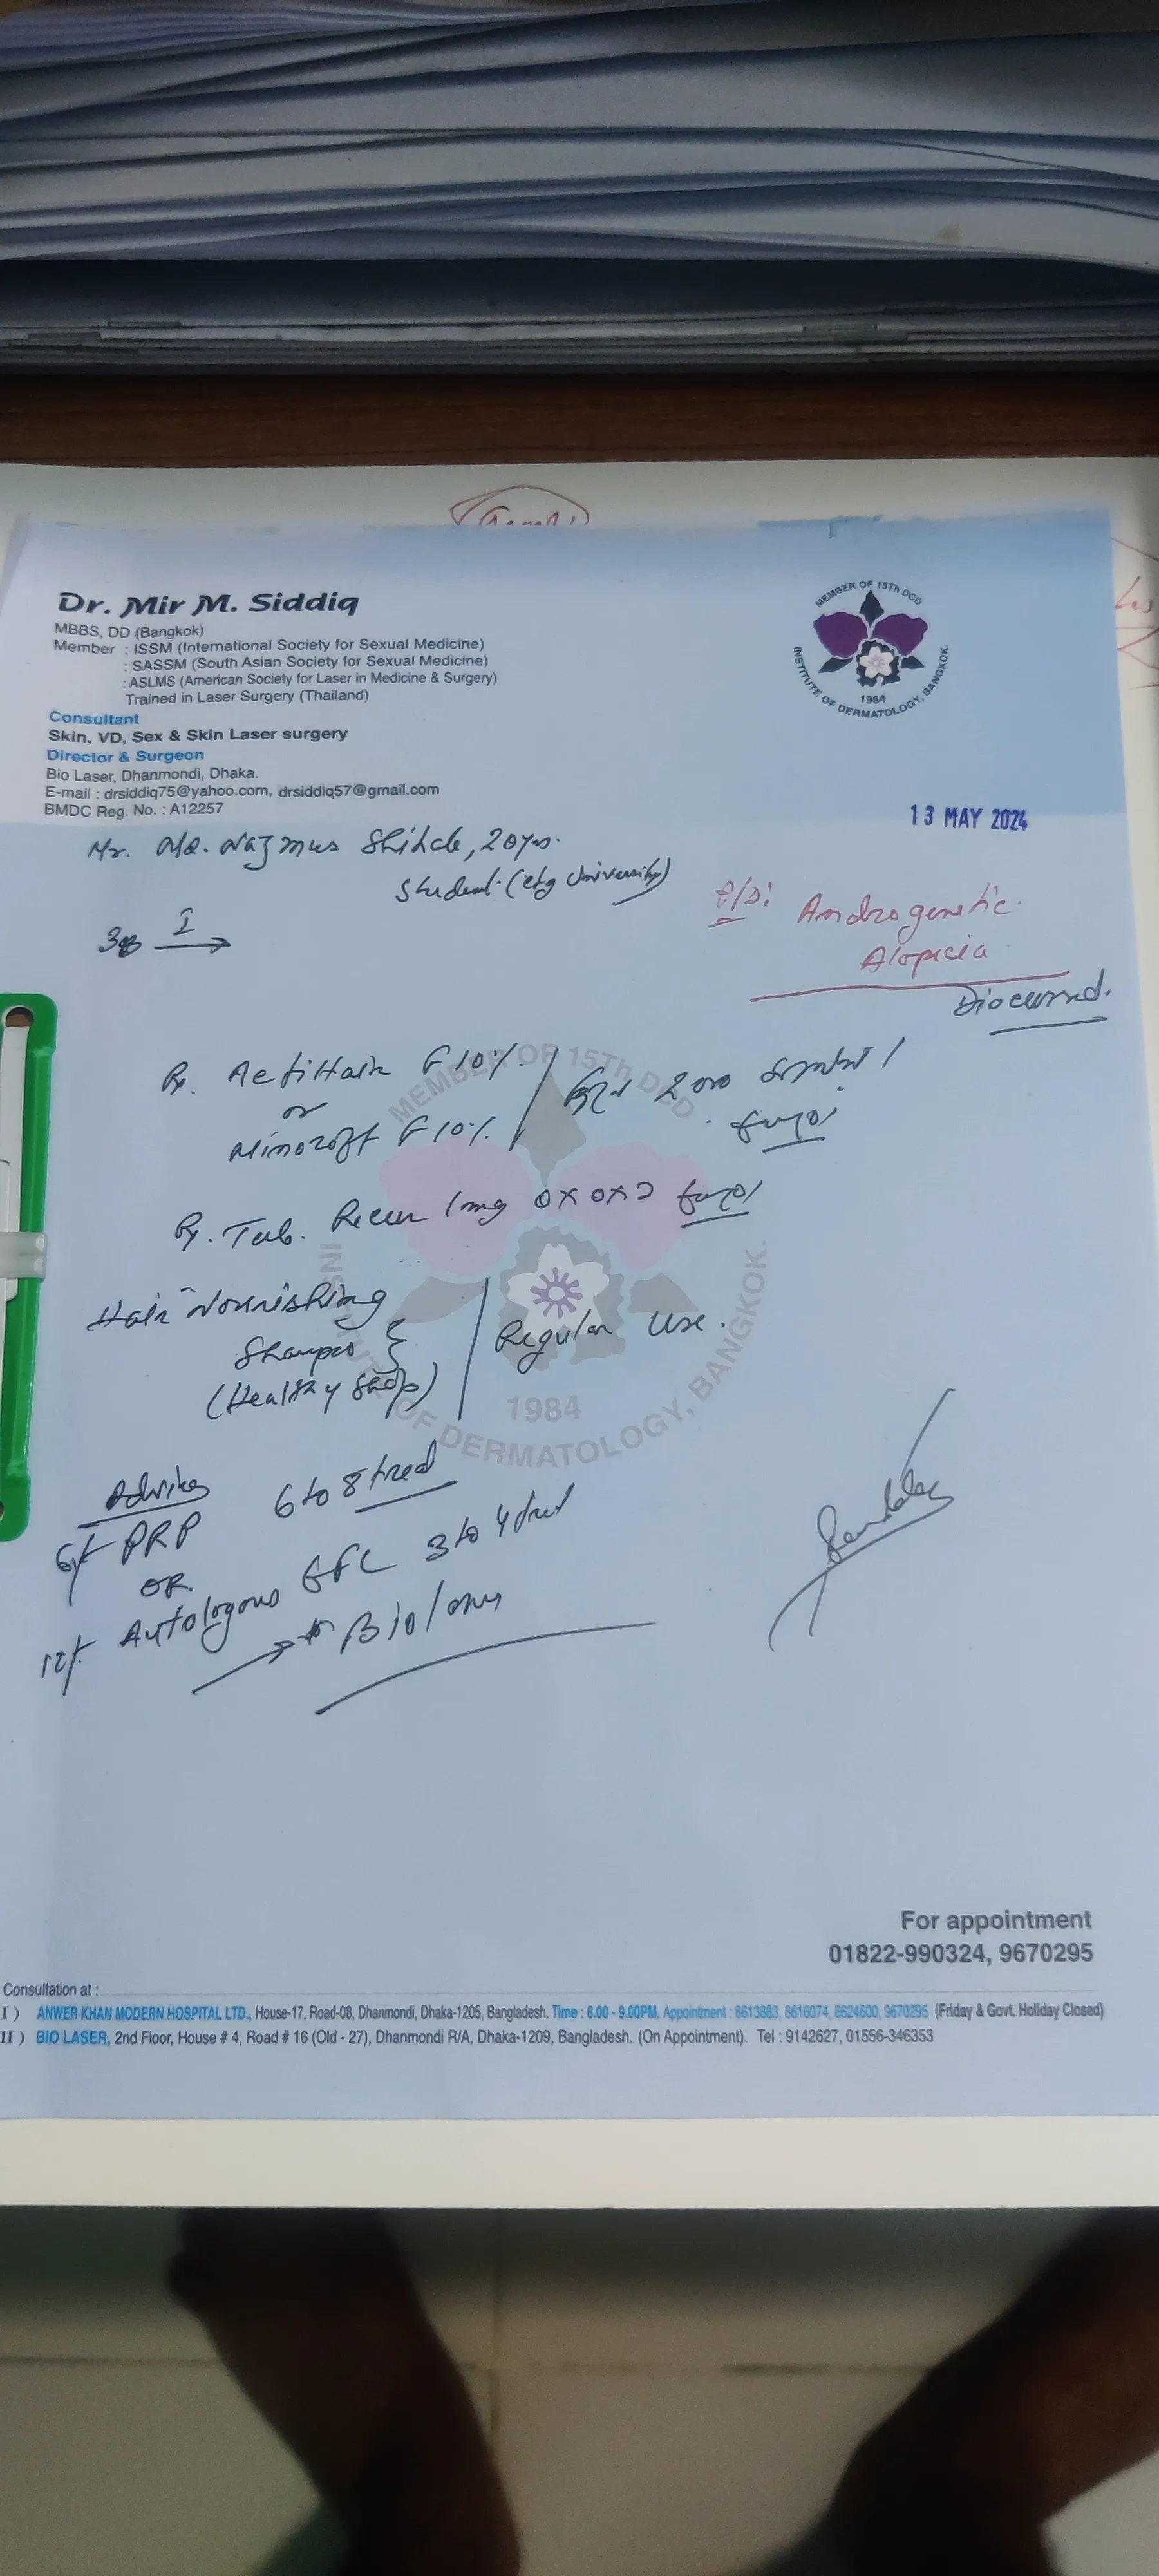 Dr. Mir M. Siddiq
MBBS, DD (Bangkok)
Member : ISSM (International Society for Sexual Medicine)
: SASSM (South Asian Society for Sexual Medicine)
: ASLMS (American Society for Laser in Medicine & Surgery)
Trained in Laser Surgery (Thailand)
Consultant
Skin, VD, Sex & Skin Laser surgery
Director & Surgeon
Bio Laser, Dhanmondi, Dhaka.
E-mail : drsiddiq75@yahoo.com, drsiddiq57@gmail.com
BMDC Reg. No. : A12257
MEMBER OF 15Th DCD
INSTITUTE OF DERMATOLOGY, BANGKOK.
1984
13 MAY 2024
Mr. Md. Nazmus 20 yrs.
Student (ctg University)
Androgenetic
Alopecia
Discussed.
Rx. Actihair F 10%
or
F 10%
দিনে 2
Rx. Tab. 1mg 0x0x
Hair Nourishing
Shampoo
(Healthy
Regular Use.
6 to 8
PRP
OR.
Autologous GFC 3 to 4
MEMBER OF 15Th DCD
INSTITUTE OF DERMATOLOGY, BANGKOK.
1984
For appointment
01822-990324, 9670295
Consultation at :
I ) ANWER KHAN MODERN HOSPITAL LTD., House-17, Road-08, Dhanmondi, Dhaka-1205, Bangladesh. Time : 6.00 - 9.00PM. Appointment : 8613883, 8616074, 8624600, 9670295 (Friday & Govt. Holiday Closed)
II ) BIO LASER, 2nd Floor, House # 4, Road # 16 (Old - 27), Dhanmondi R/A, Dhaka-1209, Bangladesh. (On Appointment). Tel : 9142627, 01556-346353